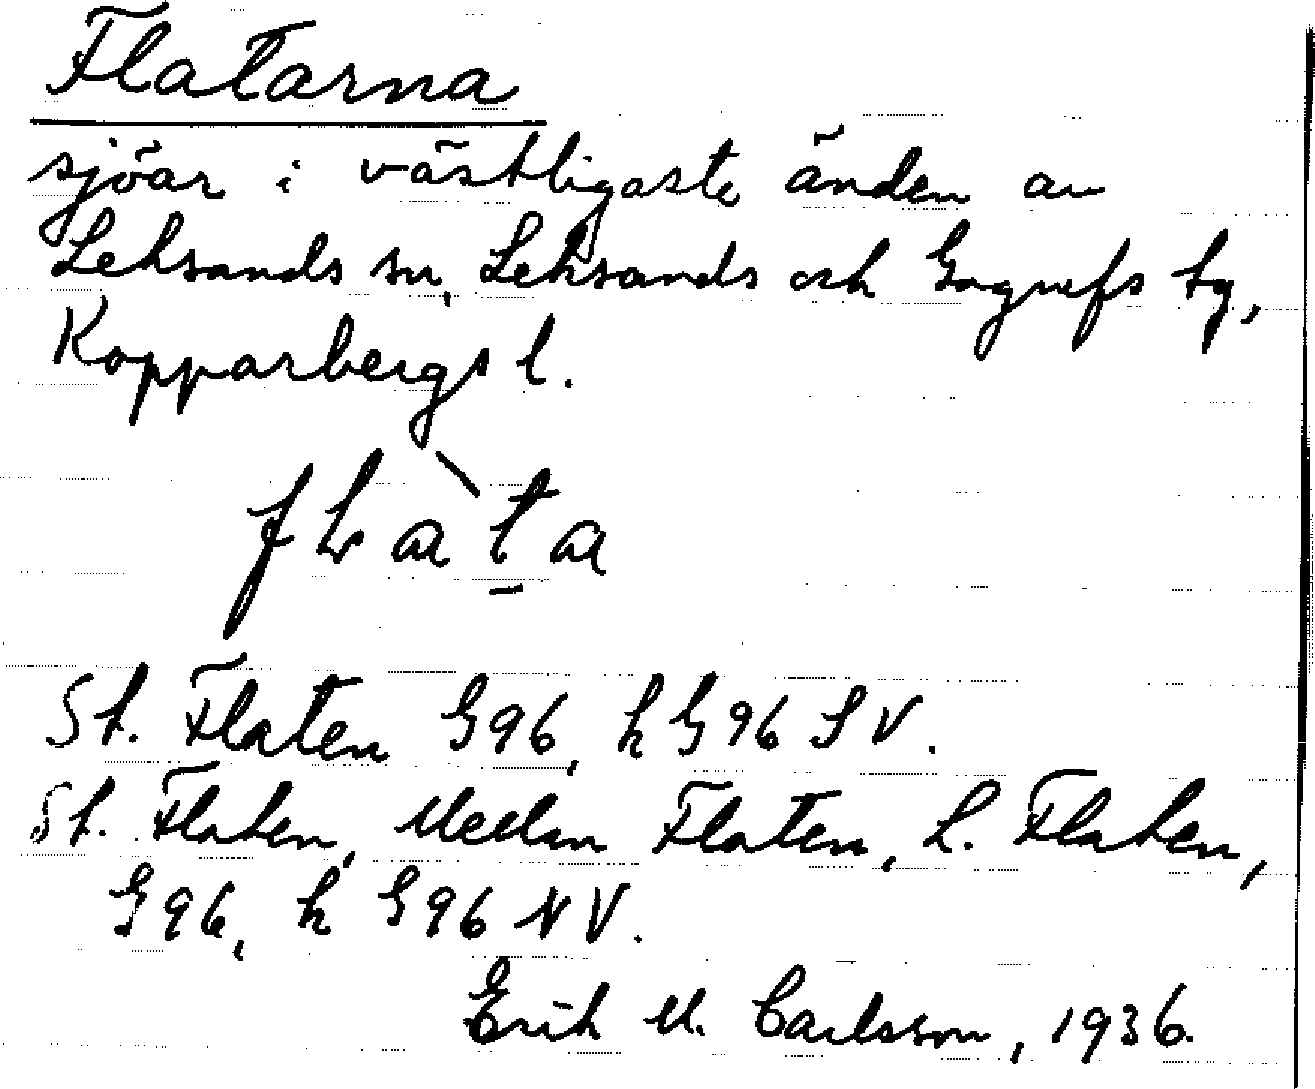 Flatarna
sjöar i västligaste änden av
Leksands sn, Leksands och Gagnefs tg,
Kopparbergs l.
flàt̠a
St. Flaten G96, k G96 SV.
St. Flaten, Mellan Flaten, L. Flaten,
G96, k G96 NV.
Erik M. Carlsson, 1936.